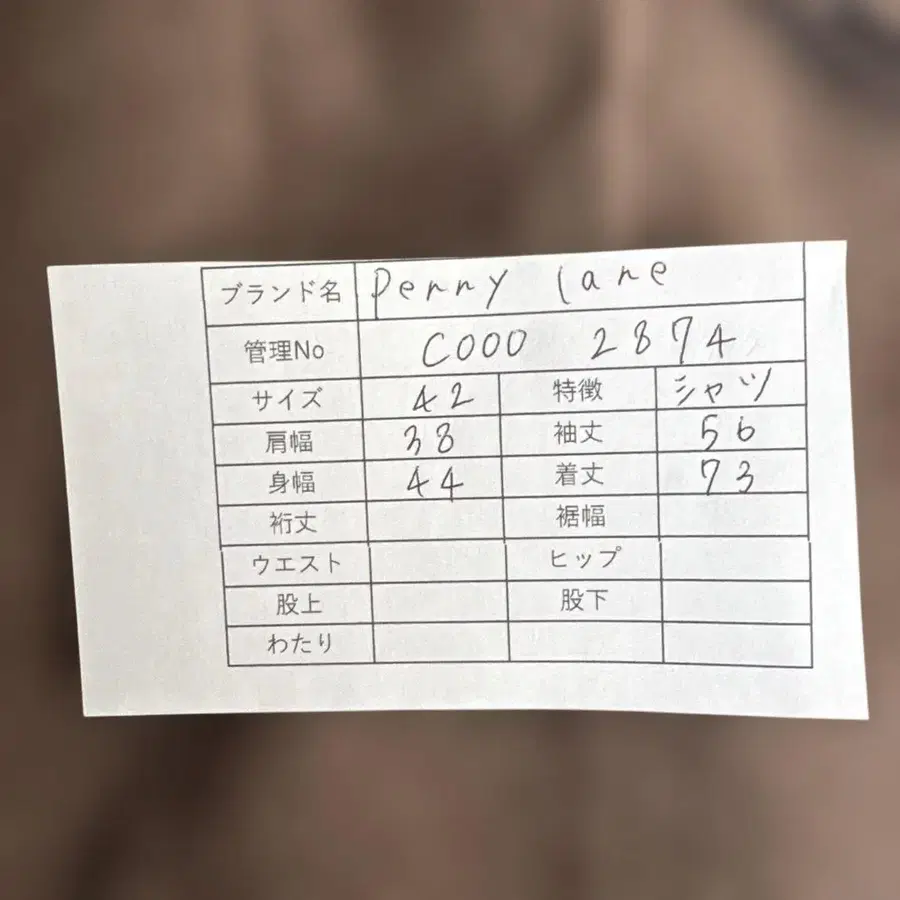 ブランド名 Penny lane
管理No C000 2874
サイズ 42 特徴 シャツ
肩幅 38 袖丈 56
身幅 44 着丈 73
裄丈 裾幅
ウエスト ヒップ
股上 股下
わたり